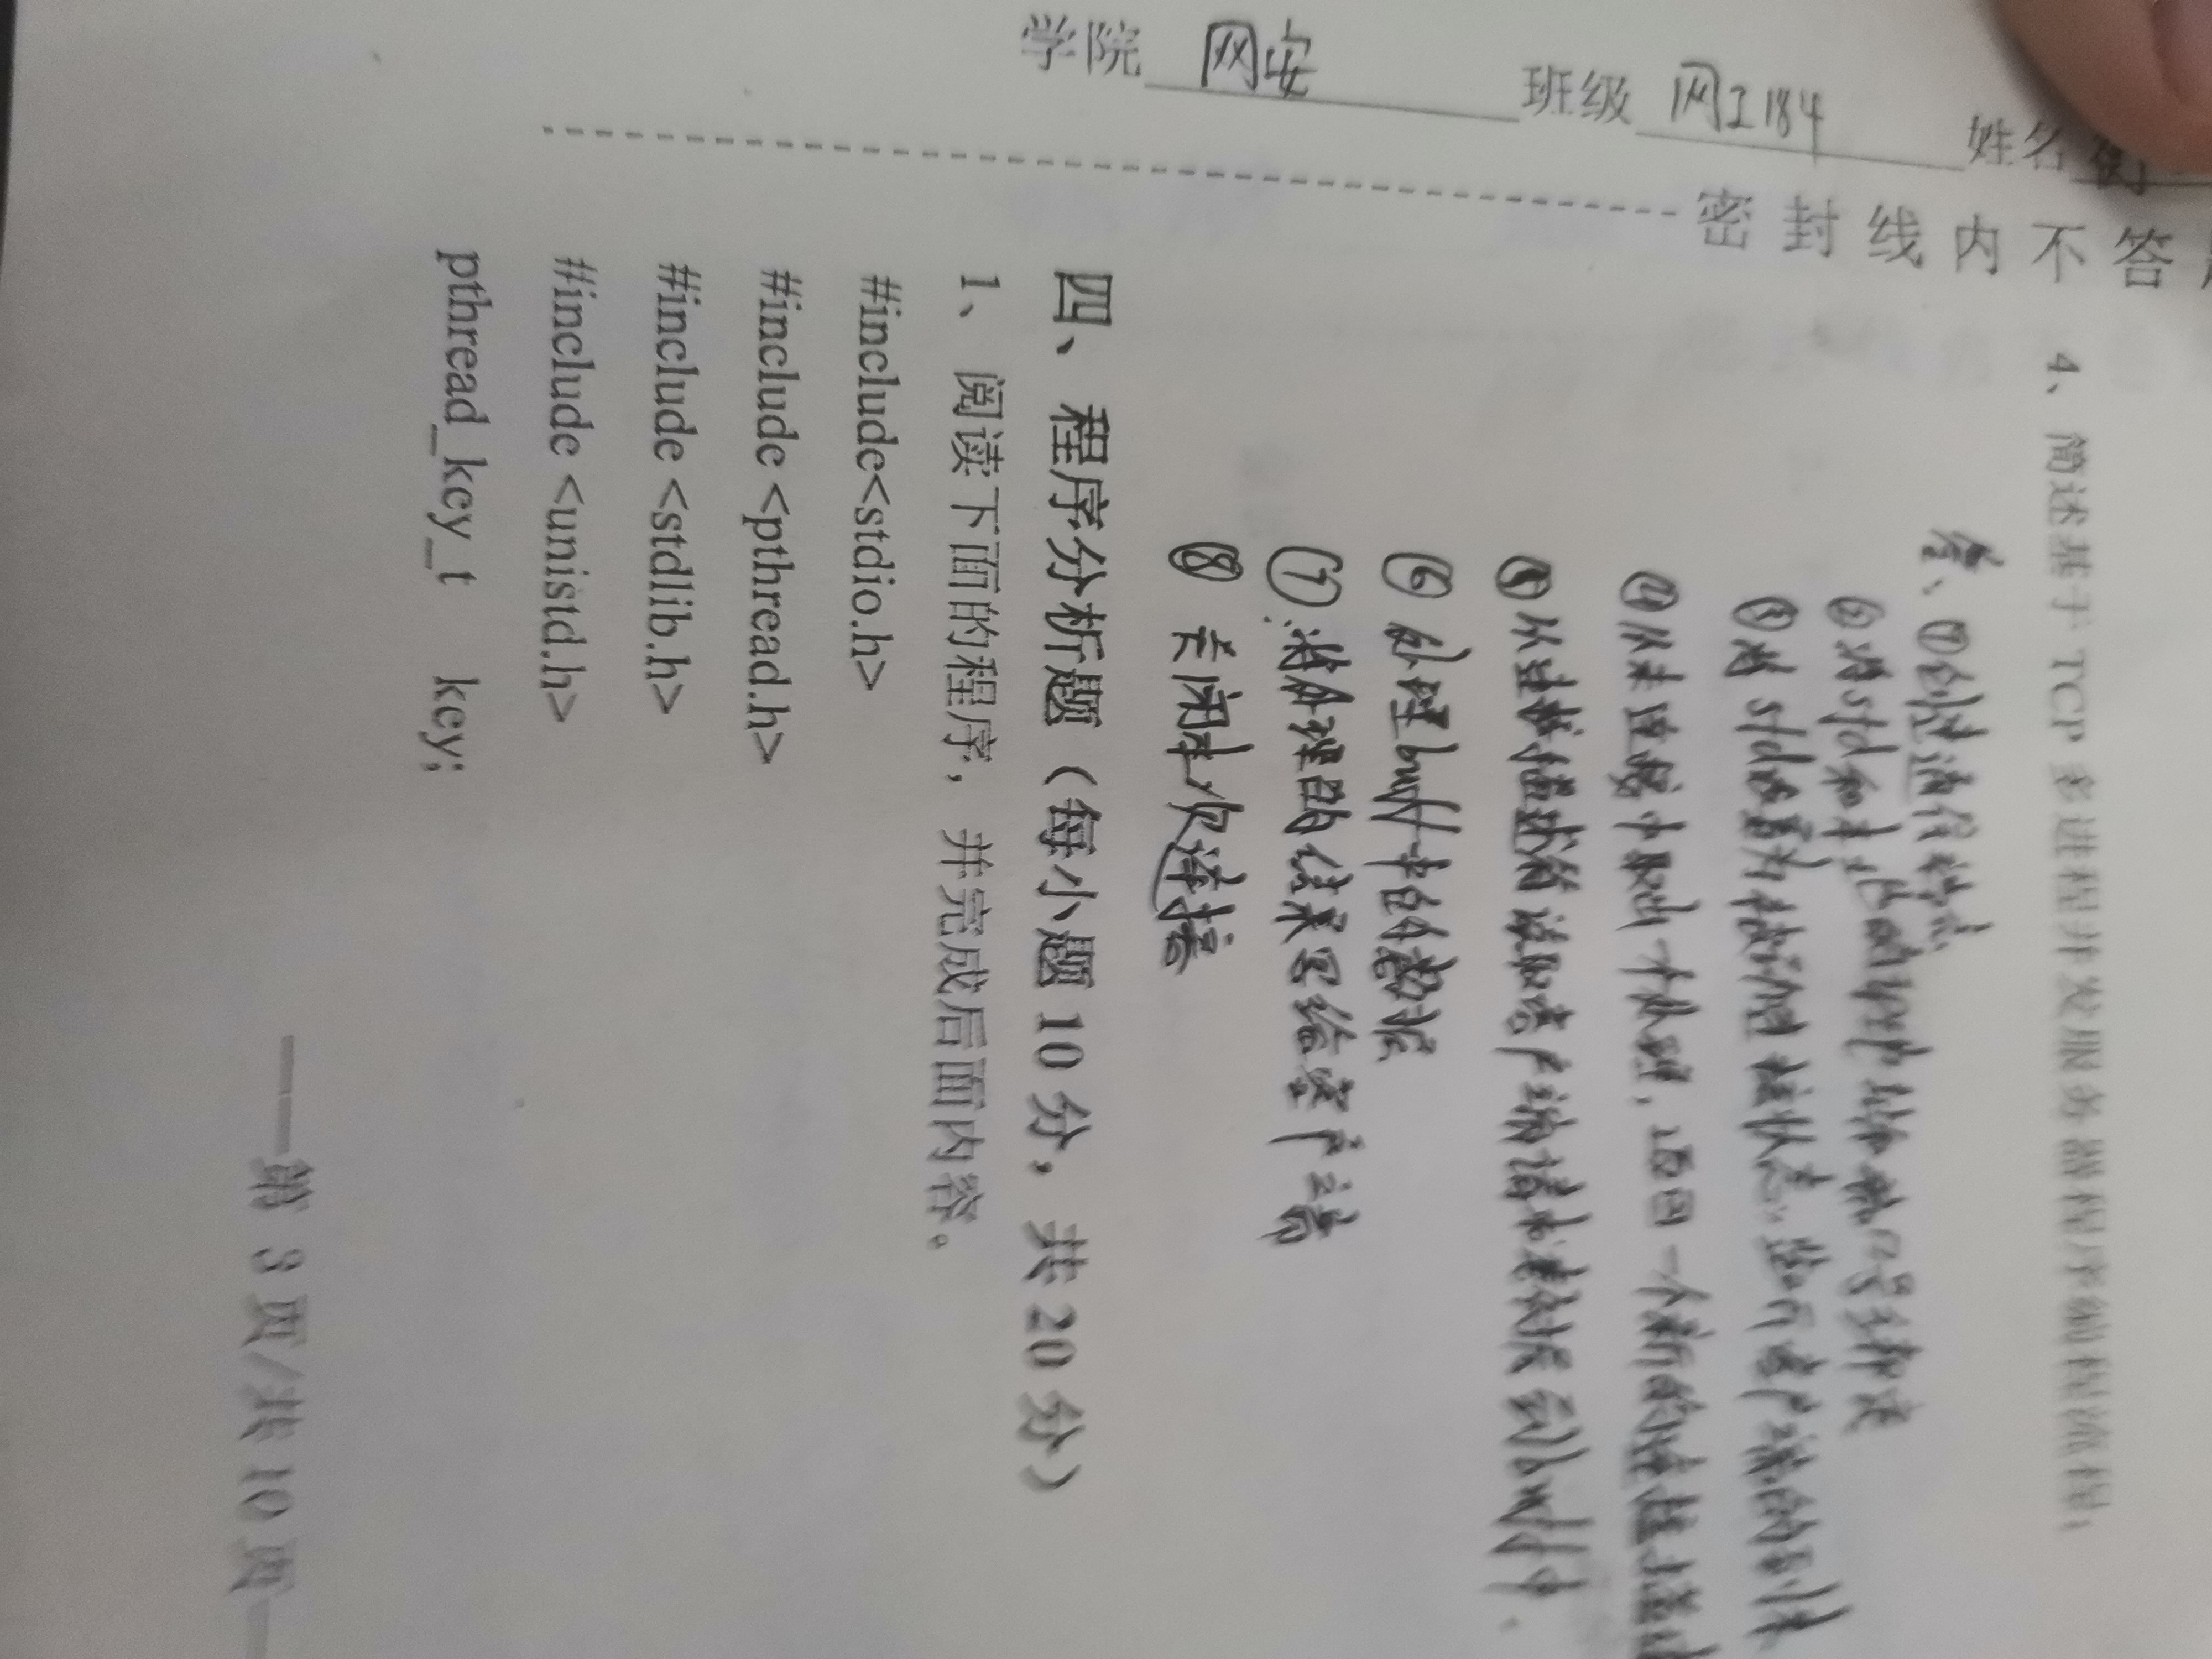 学院 网安 班级 网工184 姓名
密 封 线 内 不 答
4、简述基于 TCP 多进程并发服务器程序编程流程;
答、①创建通信端点
②将sfd和本地的ip地址和端口号绑定
③将sfd设置为监听状态,监听客户端的到来
④从未连接中取出一个处理,返回一个新的连接描述
⑤从连接描述符读取客户端请求数据到buff中.
⑥处理buff中的数据
⑦将处理的结果写给客户端
⑧关闭本次连接
四、程序分析题(每小题 10 分,共 20 分)
1、阅读下面的程序,并完成后面内容。
#include<stdio.h>
#include <pthread.h>
#include <stdlib.h>
#include <unistd.h>
pthread_key_t key;
——第 3 页/共 10 页—